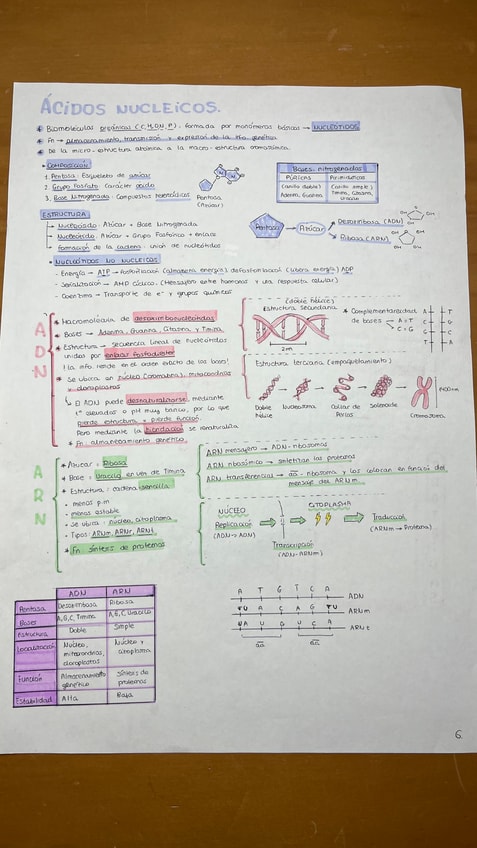 ÁCIDOS NUCLEICOS.
Biomoléculas orgánicas (C,H,O,N,P). formada por monómeros básicos → NUCLEÓTIDOS
Fn → almacenamiento, transmisión y expresión de la info. genética
De la micro-estructura atómica a la macro-estructura cromosómica.
• COMPOSICIÓN
1. Pentosa: Esqueleto de azúcar
2. Grupo Fosfato: Carácter ácido
3. Base Nitrogenada: Compuestos heterocíclicos
Pentosa
(Azúcar)
Bases Nitrogenadas
PÚRICAS
(anillo doble)
Adenina, Guanina
Pirimidínicas
(anillo simple)
Timina, Citosina,
Uracilo
ESTRUCTURA
→ Nucleósido: Azúcar + Base Nitrogenada
→ Nucleótido: Azúcar + Grupo Fosfórico + enlace
→ formación de la cadena: unión de nucleótidos
Pentosa → Azúcar
Desoxirribosa (ADN)
Ribosa (ARN)
• NUCLEÓTIDOS NO NUCLEICOS
- Energía → ATP → fosforilación (almacena energía) desfosforilación (libera energía) ADP
- Señalización → AMP cíclico. (Mensajero entre hormonas y una respuesta celular)
- Coenzima → Transporte de e⁻ y grupos químicos
ADN
* Macromolécula de desoxirribonucleótidos
* Bases → Adenina, Guanina, Citosina, y Timina
* Estructura → secuencia lineal de nucleótidos
unidas por enlace fosfodiéster
! la info. rende en el orden exacto de las bases!
* Se ubica en núcleo (cromatina), mitocondrias
y cloroplastos
↳ El ADN puede desnaturalizarse, mediante
t° elevadas o pH muy básico, por lo que
pierde estructura y pierde función.
Pero mediante la hibridación se renaturaliza
* Fn: almacenamiento genético
(doble hélice)
Estructura secundaria
2nm
* Complementariedad
de bases → A = T
→ C ≡ G
A T
C G
G C
T A
Estructura terciaria (empaquetamiento)
Doble
hélice
Nucleosoma
Collar de
Perlas
Solenoide
Cromosoma
1400nm
ARN
* Azúcar: Ribosa
* Base: Uracilo en vez de Timina
* Estructura: cadena sencilla
- menos p.m
- menos estable
• Se ubica: núcleo, citoplasma
• Tipos: ARNm, ARNr, ARNt
* Fn: síntesis de proteínas
ARN mensajero → ADN-ribosomas
ARN ribosómico → sintetizan las proteínas
ARN transferencias → aa - ribosoma y los colocan en función del
mensaje del ARNm.
NÚCLEO
Replicación
(ADN → ADN)
Transcripción
(ADN - ARNm)
CITOPLASMA
Traducción
(ARNm → Proteína)
ADN ARN
Pentosa Desoxirribosa Ribosa
Bases A,G,C, Timina A,G,C, Uracilo
Estructura Doble Simple
Localización Núcleo, mitocondrias, cloroplastos Núcleo y citoplasma
Función Almacenamiento genético Síntesis de proteínas
Estabilidad Alta Baja
A T G T C A ADN
U A C A G U ARNm
A U G U C A ARNt
aa aa
6.